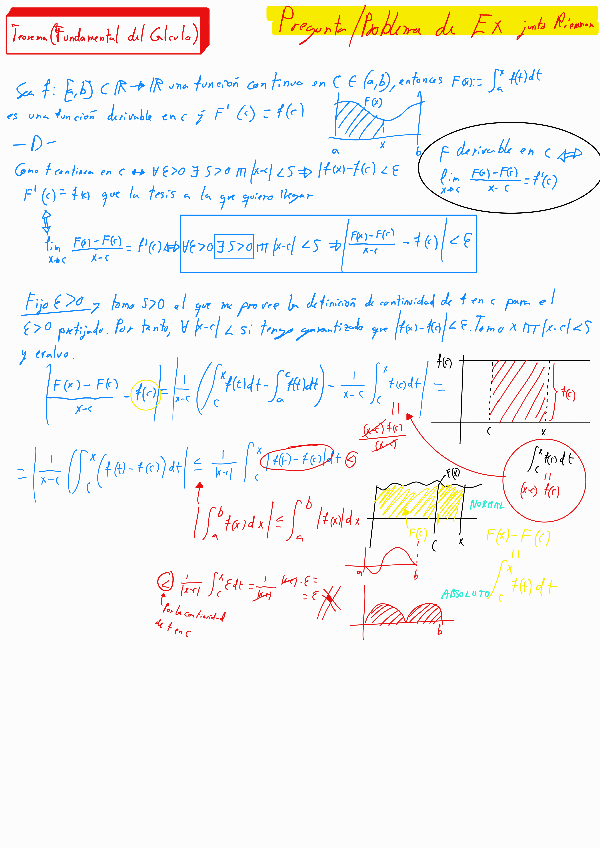 Teorema (Fundamental del Cálculo)
Pregunta/Problema de Ex junto Riemann
Sea f: [a,b] ⊂ ℝ → ℝ una función continua en c ∈ (a,b), entonces F(x) := ∫_a^x f(t)dt
es una función derivable en c y F'(c) = f(c)
F(x)
a x b
-D-
Como f continua en c ↔ ∀ε>0 ∃ δ>0 ∏ |x-c|<δ ⇒ |f(x)-f(c)|<ε
F'(c) = f(c) que la tesis a la que quiero llegar
F derivable en c ⇔
lim x→c (F(x)-F(c))/(x-c) = f'(c)
lim x→c (F(x)-F(c))/(x-c) = f'(c) ⇔ ∀ε>0 ∃ δ>0 ∏ |x-c|<δ ⇒ |(F(x)-F(c))/(x-c) - f(c)| < ε
Fijo ε>0 y tomo δ>0 el que me provee la definición de continuidad de f en c para el
ε>0 prefijado. Por tanto, ∀ |x-c|<δ si tengo garantizado que |f(x)-f(c)|<ε. Tomo x ∏ |x-c|<δ
y evalúo.
|(F(x)-F(c))/(x-c) - f(c)| = |1/(x-c) (∫_c^x f(t)dt - ∫_a^c f(t)dt) - 1/(x-c) ∫_c^x f(c)dt| =
=
(x-c) f(c)/(x-c)
f(c)
c x
f(c)
∫_c^x f(c)dt
=
(x-c) f(c)
= |1/(x-c) (∫_c^x (f(t)-f(c))dt| ≤ 1/|x-c| ∫_c^x |f(t)-f(c)|dt <
|∫_a^b f(x)dx| ≤ ∫_a^b |f(x)|dx
F(x)
F(c)
c x
NORMAL
F(x)-F(c)
=
∫_c^x f(t)dt
a b
< 1/|x-c| ∫_c^x εdt = 1/|x-c| |x-c|·ε =
= ε
Por la continuidad
de f en c
ABSOLUTO
b